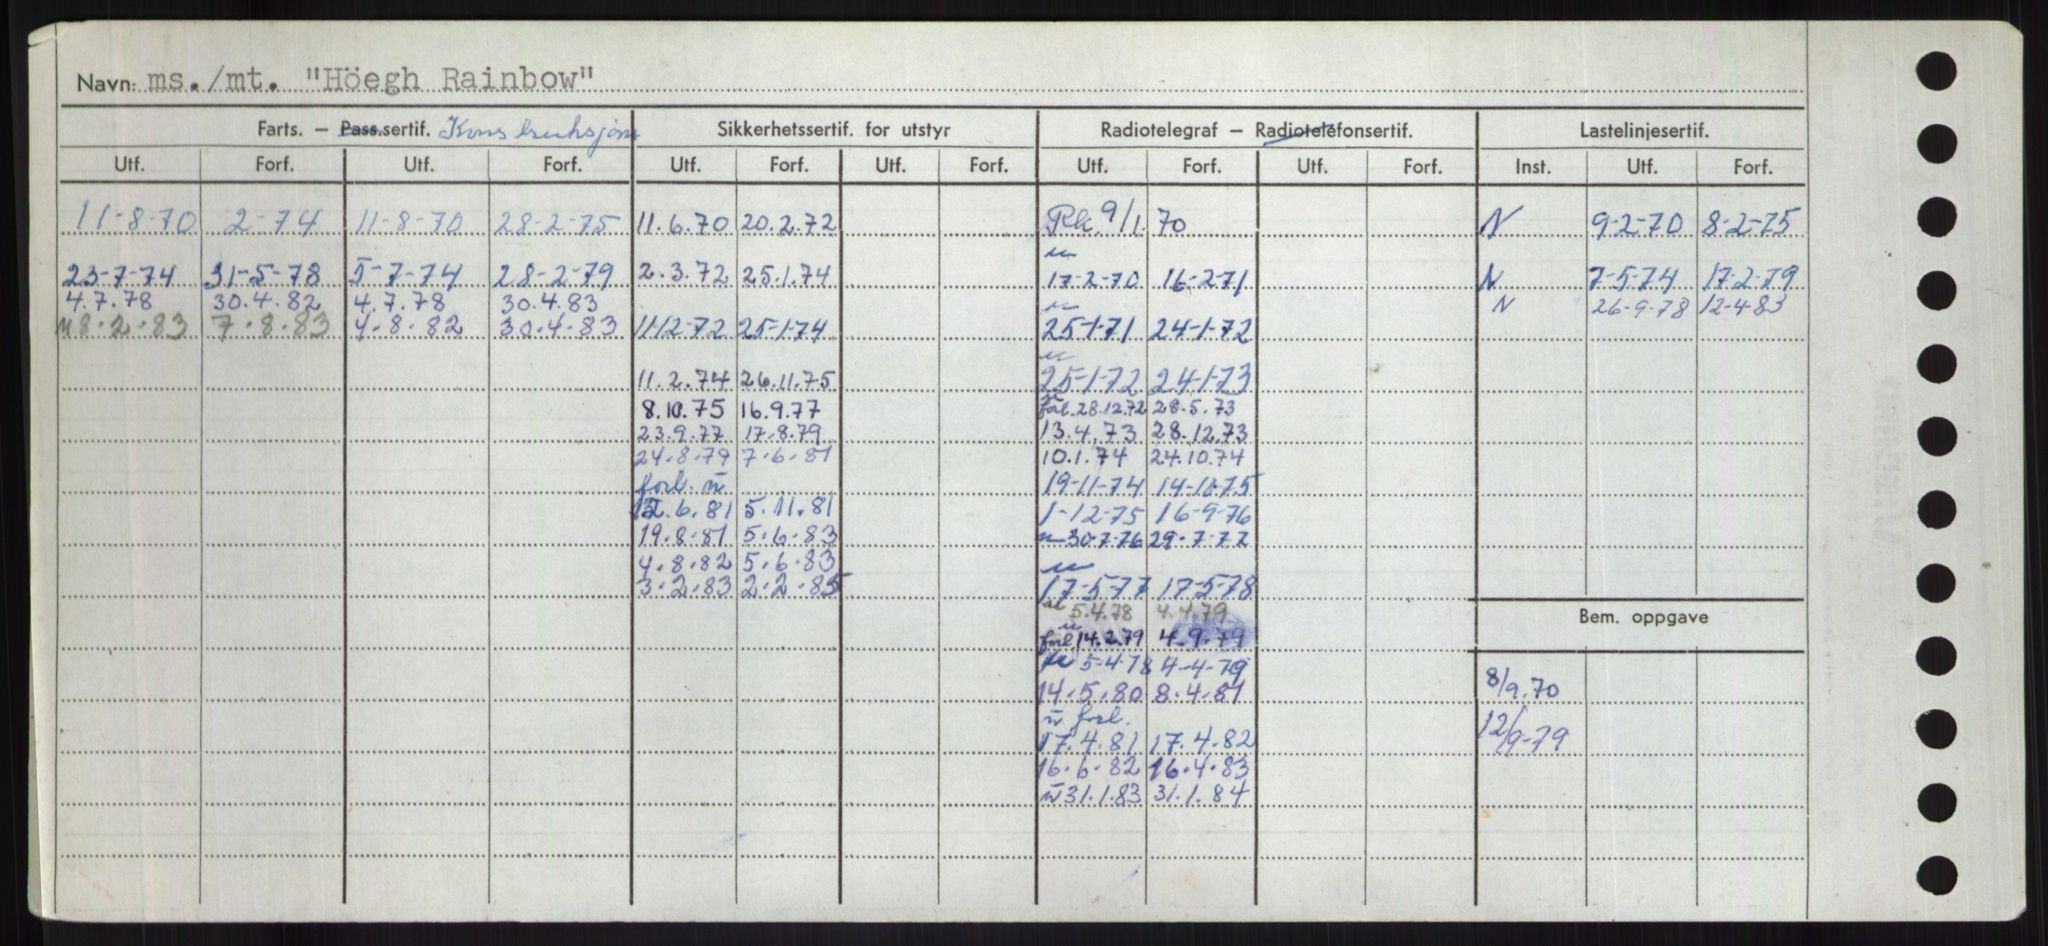 Navn: ms./mt. "Höegh Rainbow"
Farts. — Pass.sertif. Konstruksjons Sikkerhetssertif. for utstyr Radiotelegraf — Radiotelefonsertif. Lastelinjesertif.
Utf. Forf. Utf. Forf. Utf. Forf. Utf. Forf. Utf. Forf. Utf. Forf. Inst. Utf. Forf.
11-8-70 2-74 11-8-70 28-2-75 11.6.70 20.2.72 Rk. 9/1.70 N 9-2-70 8-2-75
u
23-7-74 31-5-78 5-7-74 28-2-79 2.3.72 25.1.74 17-2-70 16-2-71 N 7-5-74 17-2-79
4.7.78 30.4.82 4.7.78 30.4.83 u N 26-9-78 12-4-83
8.2.83 7.8.83 4.8.82 30.4.83 11-12-72 25-1-74 25-1-71 24-1-72
u
11.2.74 26.11.75 25-1-72 24-1-73
8.10.75 16.9.77 forl. 28.12.72 28.5.73
23.9.77 17.8.79 13.4.73 28.12.73
24.8.79 7.6.81 10.1.74 24.10.74
forl. u 19-11-74 14-10-75
12.6.81 5.11.81 1-12-75 16-9-76
19.8.81 5.6.83 u 30-7-76 29-7-77
4.8.82 5.6.83 u
3.2.83 2.2.85 17-5-77 17-5-78
5.4.78 4.4.79
u
forl. 14.2.79 4.9.79 Bem. oppgave
5-4-78 4-4-79
14.5.80 8.4.81 8/9.70
u forl.
17.4.81 17.4.82 12/9-79
16.6.82 16.4.83
u 31.1.83 31.1.84